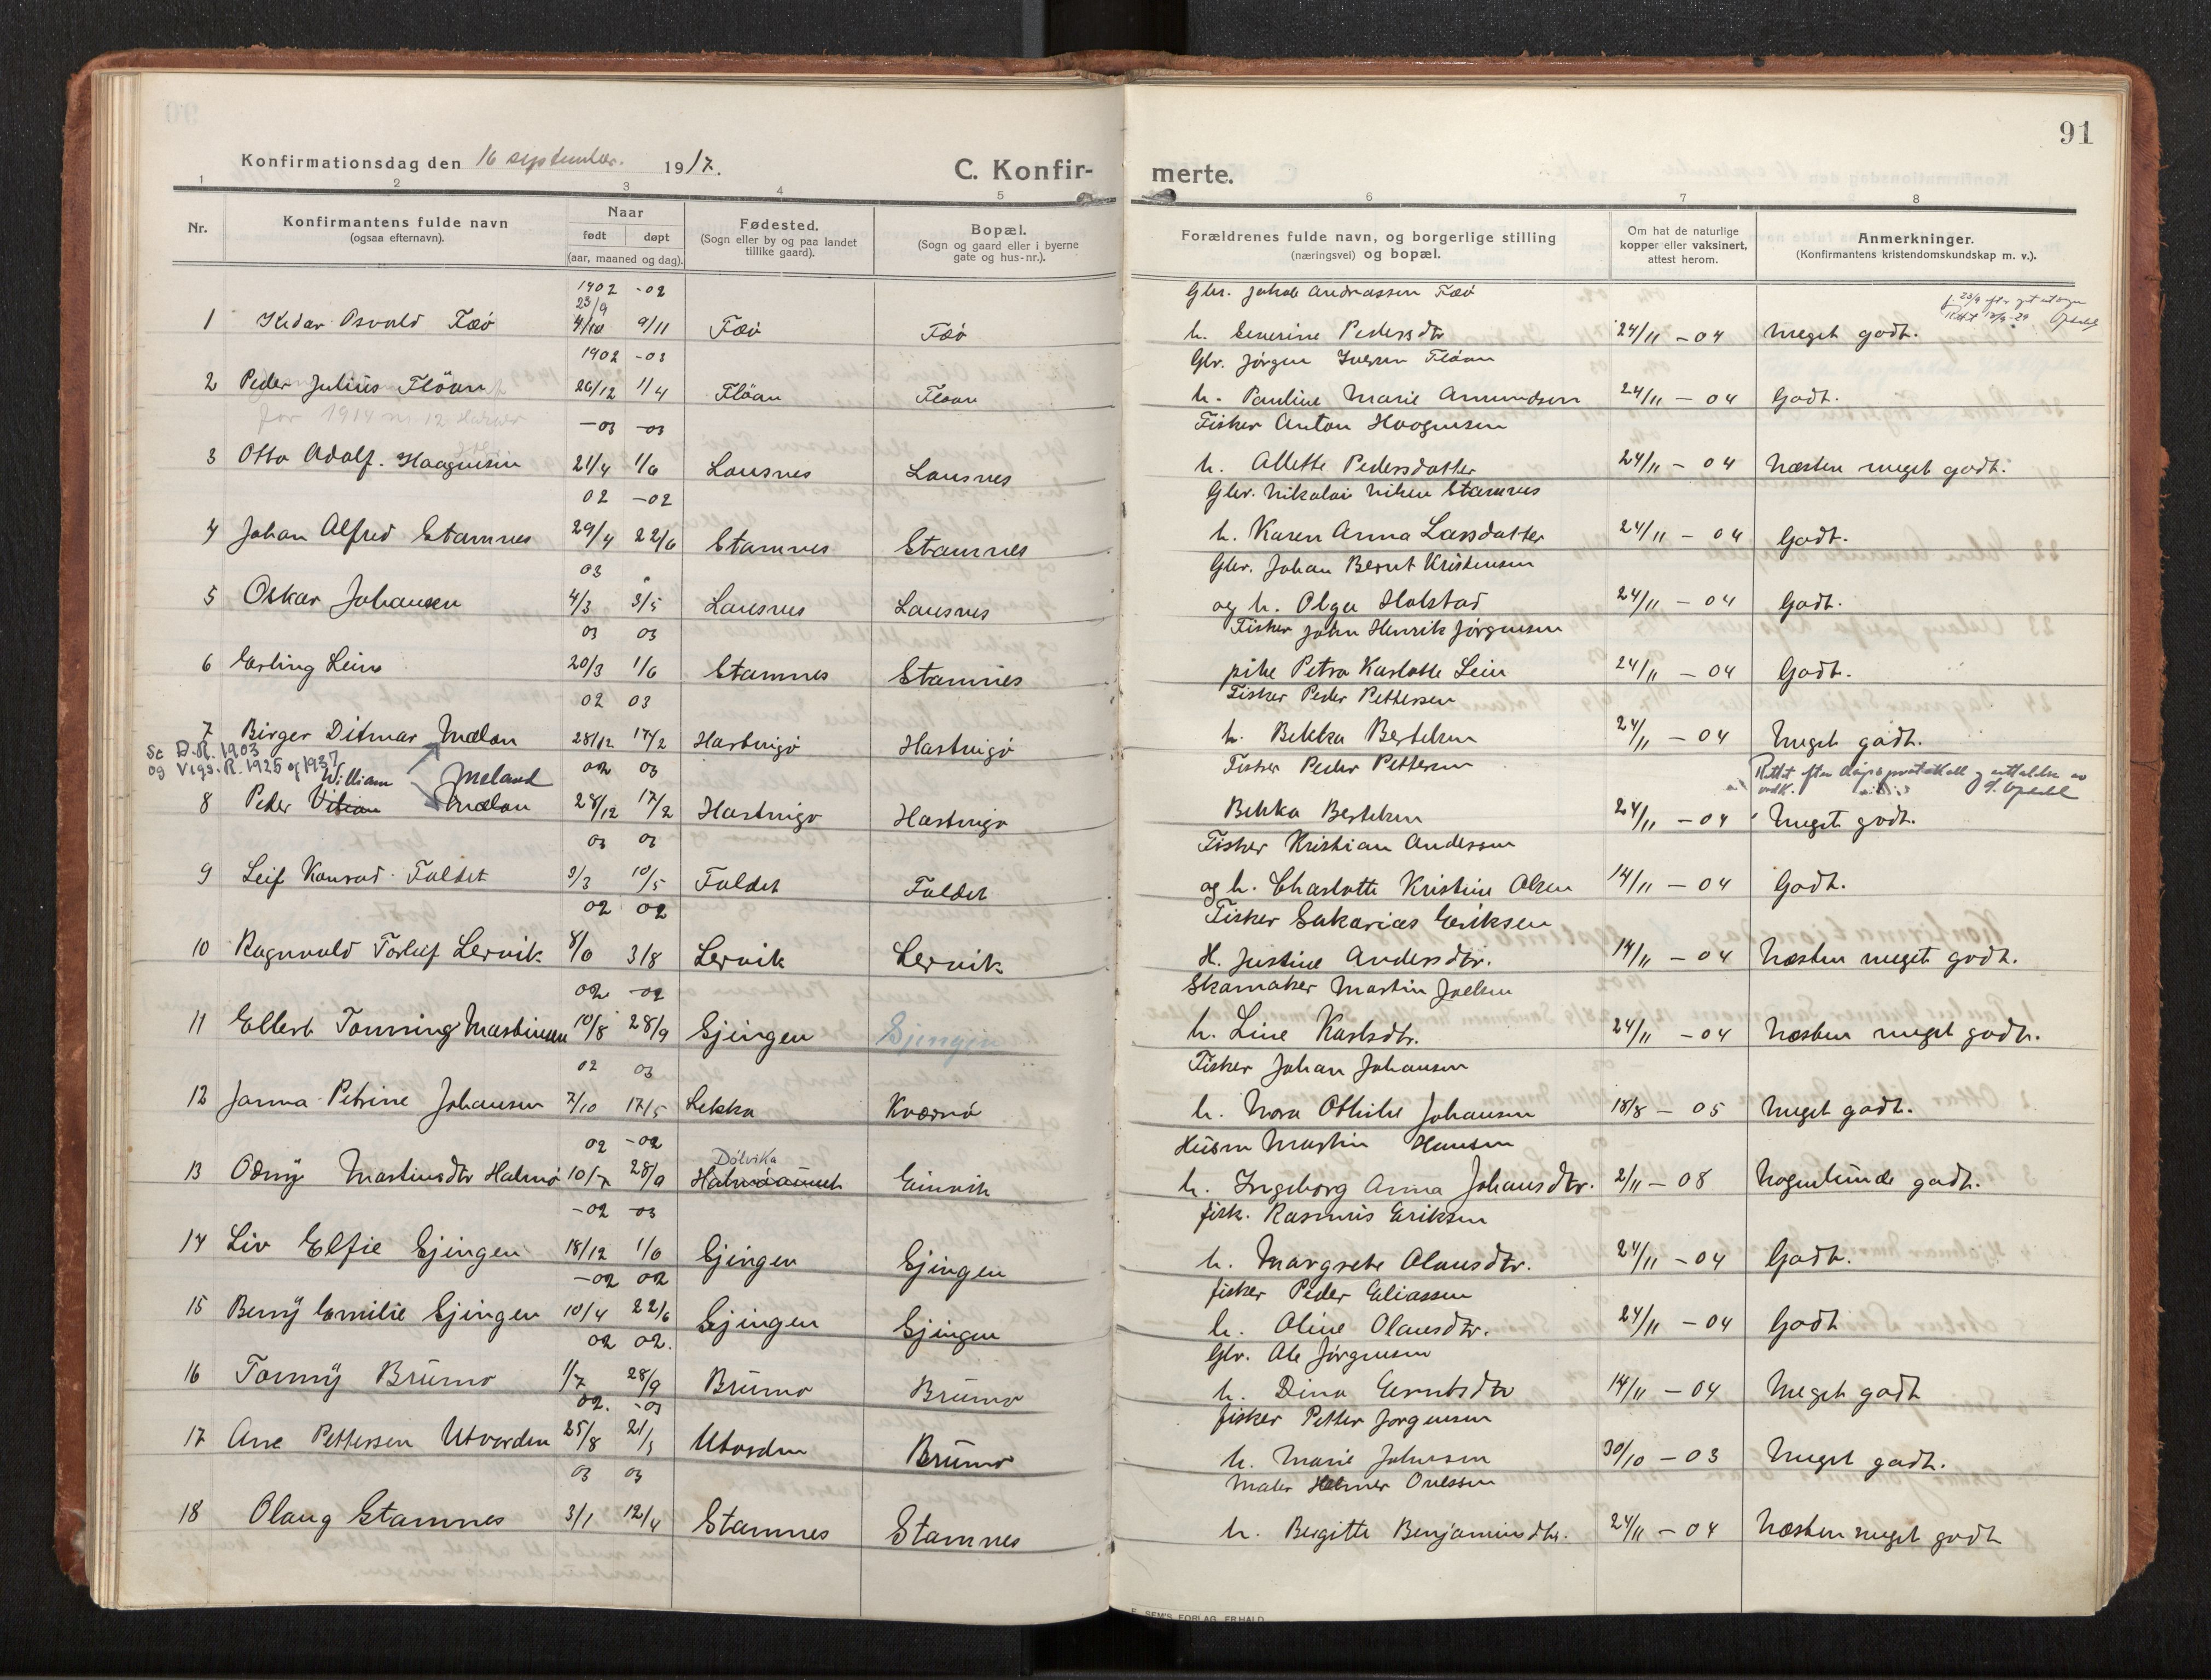 91
Konfirmationsdag den 16 september. 1917.
C. Konfir-
merte.
1 2 3 4 5 6 7 8
Nr.
Konfirmantens fulde navn
(ogsaa efternavn).
Naar
født døpt
(aar, maaned og dag).
Fødested.
(Sogn eller by og paa landet
tillike gaard).
Bopæl.
(Sogn og gaard eller i byerne
gate og hus-nr.).
Forældrenes fulde navn, og borgerlige stilling
(næringsvei) og bopæl.
Om hat de naturlige
kopper eller vaksinert,
attest herom.
Anmerkninger.
(Konfirmantens kristendomskundskap m. v.).
1902 -02 Gbr. Jakob Andreassen Fæø
23/9
1 Osvald Fæø 4/10 9/11 Fæø Fæø h. Severine Pedersdtr 24/11 - 04 Meget godt.
1902 -03 Gbr. Jørgen Iversen Fløan
2 Peder Julius Fløan 26/12 1/4 Fløan Floan h. Pauline Marie Amundsen 24/11 - 04 Godt.
for 1914 nr. 12
-03 -03 Fisker Anton Haagensen
3 Otto Adolf. Haagensen 21/4 1/6 Lausnes Lausnes h. Allette Pedersdatter 24/11 - 04 Næsten meget godt.
02 -02 Gbr. Nikolai Nilsen Stamnes
4 Johan Alfred Stamnes 29/4 22/6 Stamnes Stamnes h. Karen Anna Larsdatter 24/11 - 04 Godt.
03 Gbr. Johan Bernt Kristensen
5 Oskar Johansen 4/3 3/5 Lausnes Lausnes og h. Olga Holstad 24/11 - 04 Godt.
03 03 Fisker John Henrik Jørgensen
6 Erling Lein 20/3 1/6 Stamnes Stamnes pike Petra Karlotte Lein 24/11 - 04 Godt.
02 03 Fisker Peder Pettersen
7 Birger Ditmar Mælan 28/12 17/2 Hartvigø Hartvigø h. Bekka Bertelsen 24/11 - 04 Meget godt.
Se D.R. 1903
og Vigs. R. 1925 og 1937
William Meland
02 03 Fisker Peder Pettersen
Rettet efter dåpsprotokoll og uttalelse av
vedk.
8 Peder Vilian Mælan 28/12 17/2 Hartvigø Hartvigø Bekka Bertelsen 24/11 - 04 Meget godt.
03 03 Fisker Kristian Andersen
9 Leif Konrad Faldet 9/3 10/5 Faldet Faldet og h. Charlotte Kristine Olsen 14/11 - 04 Godt.
02 02 Fisker Sakarias Eriksen
10 Ragnvald Torleif Lervik 8/6 3/8 Lervik Lervik H. Justine Andersdtr. 14/11 - 04 Næsten meget godt.
02 -02 Skomaker Martin Joelsen
11 Ellert Tonning Martinsen 10/8 28/9 Gjingen Gjingen h. Line Karlsdtr. 24/11 - 04 Næsten meget godt.
02 03 Fisker Johan Johansen
12 Janna Petrine Johansen 7/10 17/5 Lekka Kværnø h. Nora Othilie Johansen 18/8 - 05 Meget godt.
02 -02 Husm Martin Hansen
Dølvika
13 Odny Martinsdtr Halmø 10/7 28/9 Einvik h. Ingeborg Anna Johansdtr. 2/11 - 08 Nogenlunde godt.
-02 -03 fisk. Rasmus Eriksen
14 Liv Elfie Gjingen 18/12 1/6 Gjingen Gjingen h. Margrete Olausdtr. 24/11 - 04 Godt.
-02 02 fisker Peder Eliassen
15 Beny Emilie Gjingen 10/4 22/6 Gjingen Gjingen h. Oline Olausdtr. 24/11 - 04 Godt
02 02. Gbr. Ole Jørgensen
16 Tonny Brumo 1/7 28/9 Brumo Brumo h. Dina Erntsdtr 14/11 - 04 Meget godt
02. -03 fisker Petter Jørgensen
17 Arne Pettersen Utvorden 25/8 21/5 Utvorden Brumo h. Marie Johnsen 30/10 - 03 Meget godt.
03 03 Maler Helmer Ovessen
18 Olaug Stamnes 3/1 12/4 Stamnes Stamnes h. Bergitte Benjaminsdtr. 24/11 - 04 Næsten meget godt